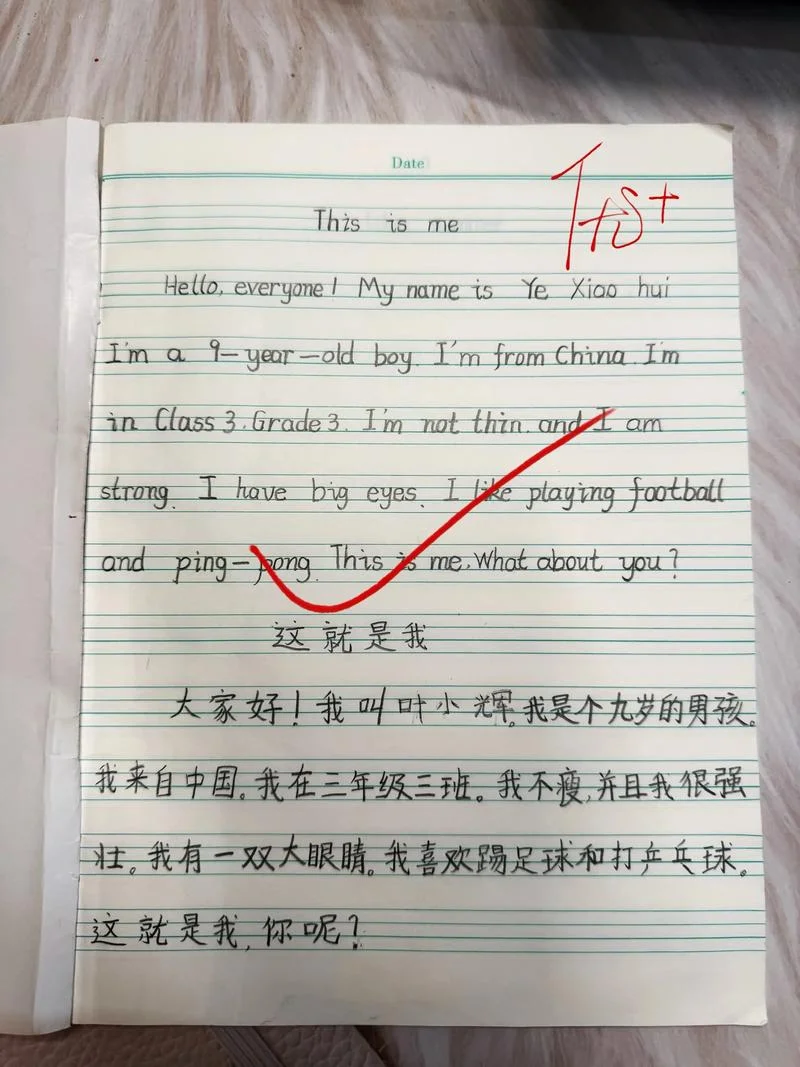 Date
This is me
Hello, everyone! My name is Ye Xiao hui
I'm a 9-year-old boy. I'm from China. I'm
in Class 3. Grade 3. I'm not thin. and I am
strong. I have big eyes. I like playing football
and ping-pong. This is me. What about you?
这就是我
大家好!我叫叶小辉。我是个九岁的男孩。
我来自中国。我在三年级三班。我不瘦,并且我很强
壮。我有一双大眼睛。我喜欢踢足球和打乒乓球。
这就是我,你呢?